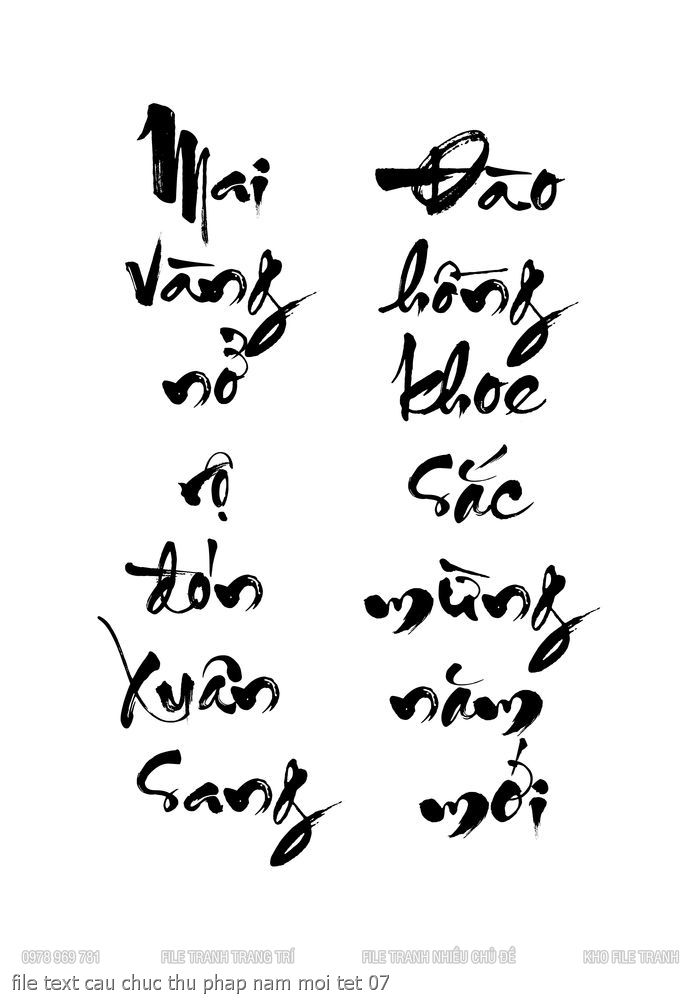 Mai
vàng
nở
rộ
đón
xuân
sang
Đào
hồng
khoe
sắc
mừng
năm
mới
0978 969 781 FILE TRANH TRANG TRÍ FILE TRANH NHIỀU CHỦ ĐỀ KHO FILE TRANH
file text cau chuc thu phap nam moi tet 07